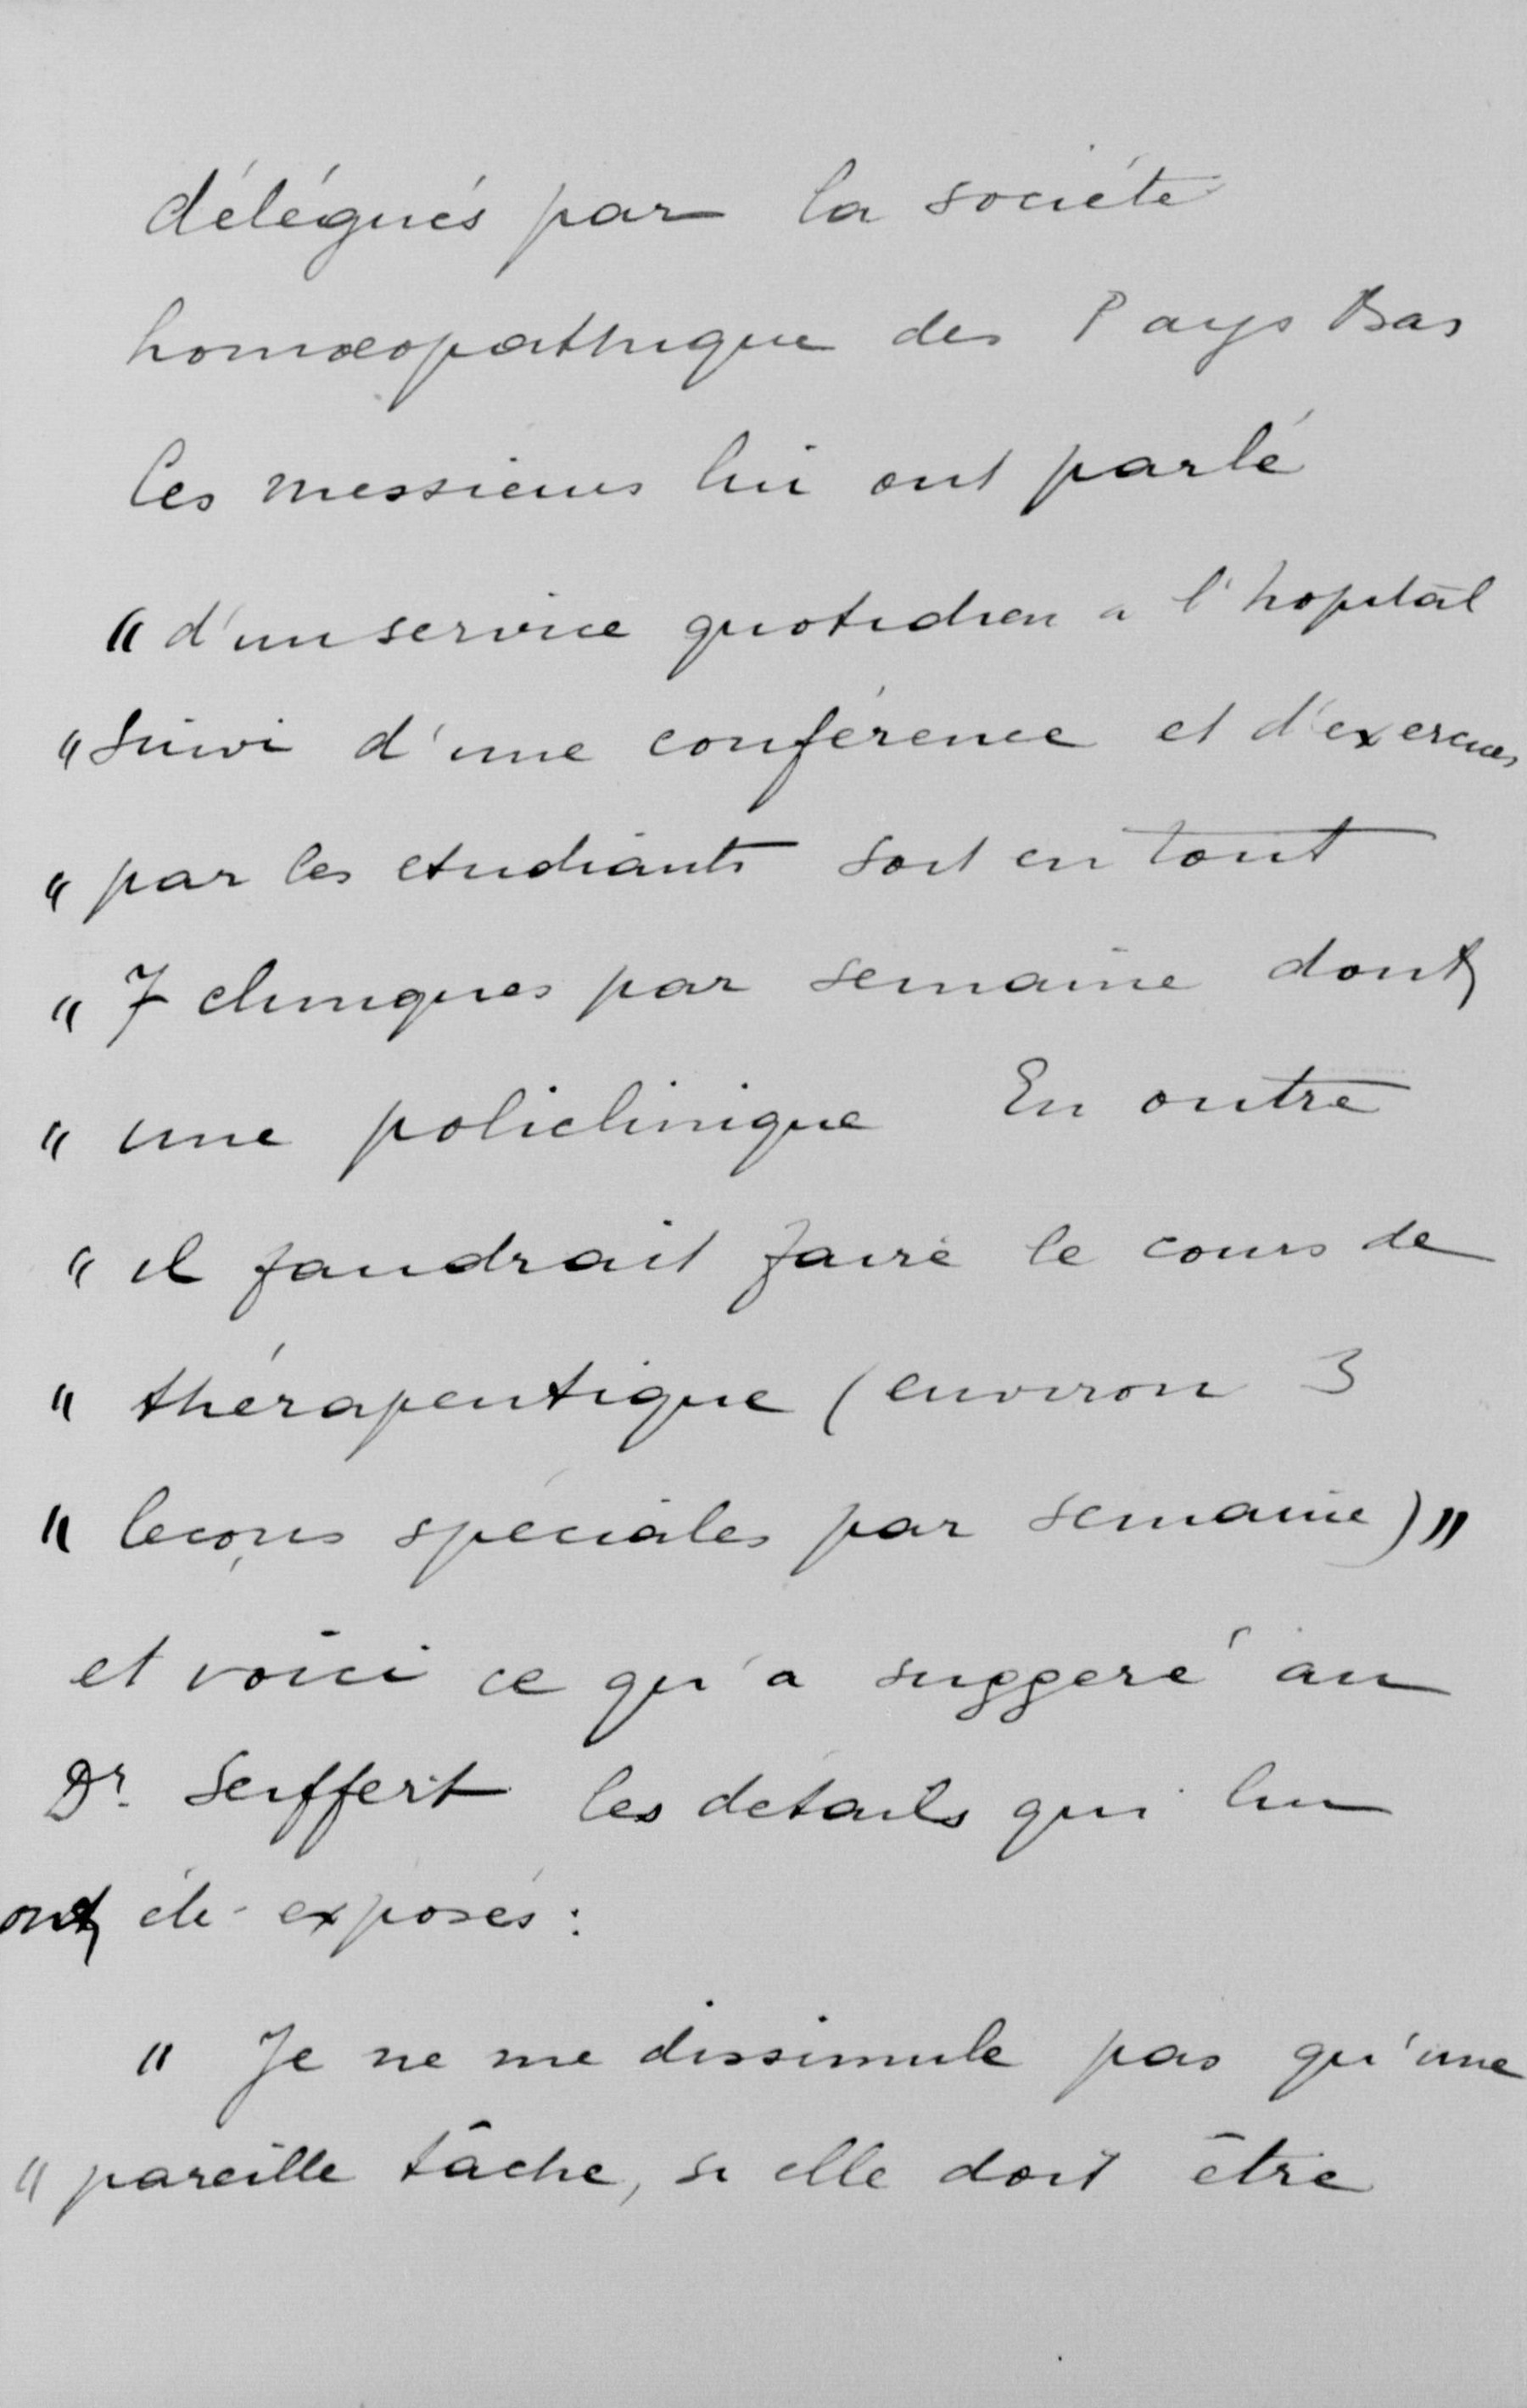 délégués par la société
homœopathique des Pays Bas
Ces messieurs lui ont parlé
« d'un service quotidien a l'hopital
« suivi d'une conférence et d'exercices
« par les etudiants soit en tout
« 7 cliniques par semaine dont
« une policlinique En outre
« il faudrait faire le cours de
« thérapeutique (environ 3
« leçons spéciales par semaine) »
et voici ce qu'a suggeré au
Dr. Seiffert les details qui lui
ont été exposés :
« Je ne me dissimule pas qu'une
« pareille tâche, si elle doit être